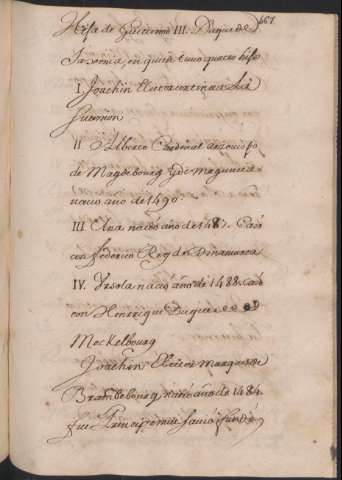 Hija de Guillermo III. Duque de 667
Saxonia, en quien tuvo quatro hijos
I. Joachin Elector continuara la
sucession
II. Alberto Cardenal arzovispo
de Magdebourg y de Maguncia
nacio año de 1490.
III. Elna nacio año de 1487. Casó
con federico Rey de Dinamarca
IV. Ursola nacio año de 1488. casó
con Henrrique Duque de
Meckelbourg
Joachin, Elector Marques de
Brandebourg, nacio año de 1484.
fue Principe mui savio fundó